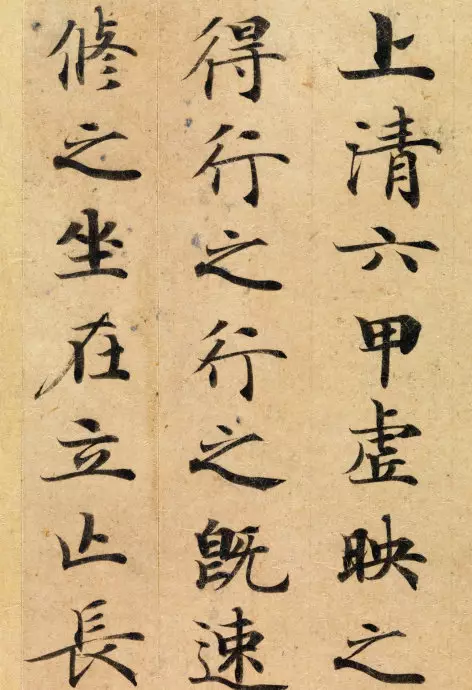 上清六甲虛映之
得行之行之既速
脩之坐在立亾長